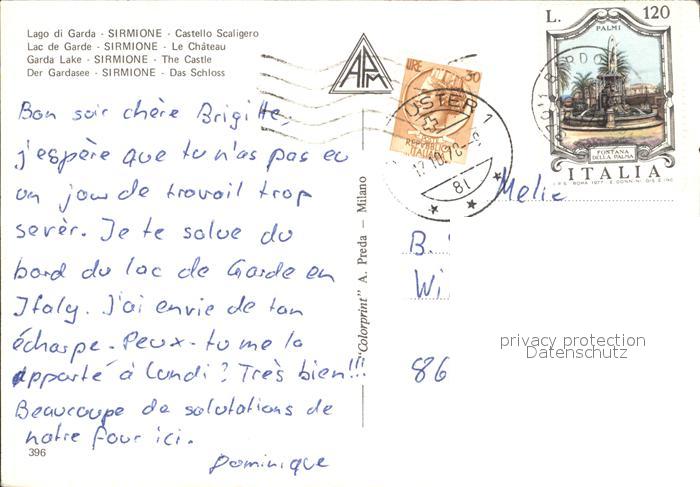 Lago di Garda - SIRMIONE - Castello Scaligero
Lac de Garde - SIRMIONE - Le Château
Garda Lake - SIRMIONE - The Castle
Der Gardasee - SIRMIONE - Das Schloss
Bon soir chère Brigitte,
j'espère que tu n'as pas eu
un jour de travail trop
sevèr. Je te salue du
bord du lac de Garde en
Italy. J'ai envie de ton
écharpe. Peux-tu me la
apporté à lundi? Très bien!!!
Beaucoupe de salutations de
notre four ici.
Dominique
396
APM
"Colorprint" A. Preda - Milano
LIRE 30
POSTE
REPUBBLICA
ITALIANA
1 USTER 1
17.10.78-9
81
L. 120
PALMI
FONTANA
DELLA PALMA
ITALIA
I.P.S. ROMA 1977
Melie
B.
Wi
86
privacy protection
Datenschutz